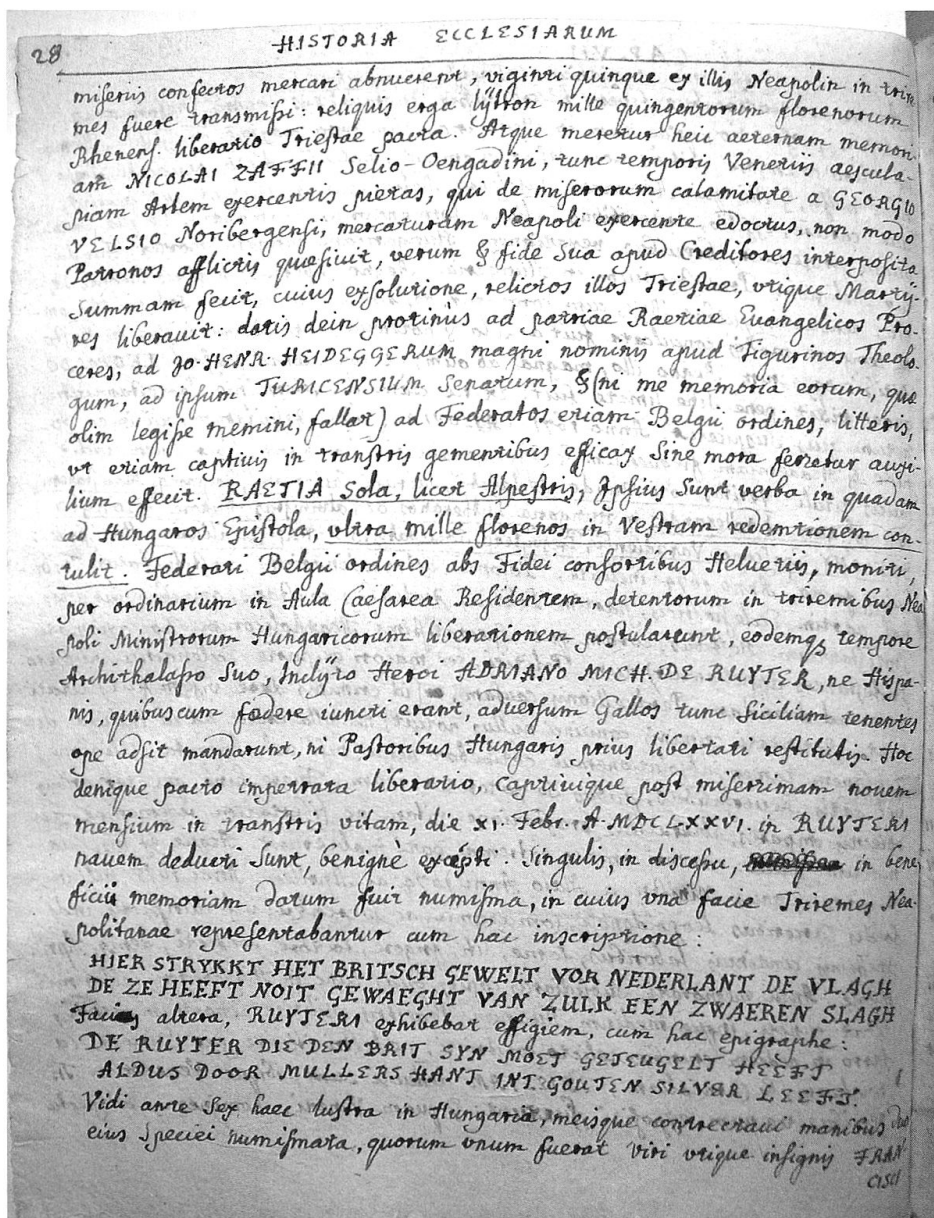 28 HISTORIA ECCLESIARUM
miseriis confectos mercari abnuerent, viginti quinque ex illis Neapolin in trire
mes fuere transmissi: reliquis erga lÿtron mille quingentorum florenorum
Rhenens. liberatio Triestae pacta. Atque meretur heic aeternam memori
am NICOLAI ZAFFII Selio-Oengadini, tunc temporis Venetiis aescula-
piam Artem exercentis pietas, qui de miserorum calamitate a GEORGIO
VELSIO Noribergensi, mercaturam Neapoli exercente edoctus, non modo
Patronos afflictis quaesivit, verum & fide Sua apud Creditores interposita
Summam fecit, cuius exsolutione, relictos illos Triestae, vtique Martÿ-
res liberauit: datis dein protinùs ad patriae Raetiae Evangelicos Pro-
ceres, ad JO. HENR. HEIDEGGERUM magni nominis apud Tigurinos Theolo
gum, ad ipsum TURICENSIUM Senatum, & (ni me memoria eorum, quae
olim legisse memini, fallat) ad Federatos etiam Belgii ordines, litteris,
vt etiam captiuis in transtris gementibus efficax Sine mora ferretur auxi-
lium effecit. RAETIA Sola, licet Alpestris, Ipsius Sunt verba in quadam
ad Hungaros Epistola, vltra mille florenos in Vestram redemtionem con-
tulit. Federati Belgii ordines abs Fidei consortibus Helvetiis, moniti,
per ordinarium in Aula Caesarea Residentem, detentorum in triremibus Nea
poli Ministrorum Hungaricorum liberationem postularunt, eodemq; tempore
Archithalasso Suo, Inclÿto Heroi ADRIANO MICH. DE RUYTER, ne Hispa-
nis, quibuscum fœdere iuncti erant, adversum Gallos tunc Siciliam tenentes
ope adsit mandarunt, ni Pastoribus Hungaris prius libertati restitutis. Hoc
denique pacto impetrata liberatio, Captiuique post miserrimam nouem
mensium in transtris vitam, die XI. Febr. A. MDCLXXVI. in RUYTERI
nauem deducti Sunt, benignè excepti. Singulis, in discessu, in bene
ficii memoriam datum fuit numisma, in cuius vna facie Triremes Nea-
politanae representabantur cum hac inscriptione:
HIER STRYKKT HET BRITSCH GEWELT VOR NEDERLANT DE VLAGH
DE ZE HEEFT NOIT GEWAEGHT VAN ZULK EEN ZWAEREN SLAGH
Facies altera, RUYTERI exhibebat effigiem, cum hac epigraphe:
DE RUYTER DIE DEN BRIT SYN MOET GETEUGELT HEEFT
ALDUS DOOR MULLERS HANT INT GOUTEN SILVER LEEFT.
Vidi ante Sex haec lustra in Hungaria, meisque contrectaui manibus duo
eius Speciei numismata, quorum vnum fuerat viri vtique insignis FRAN
CISCI